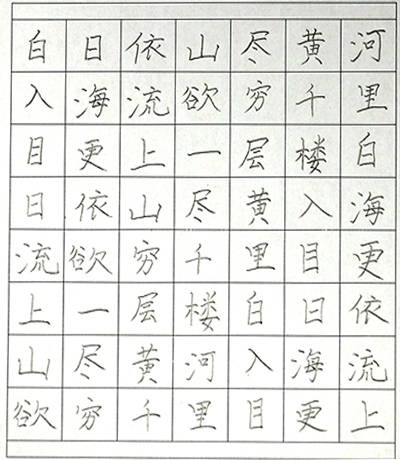 白日依山尽黄河
入海流欲穷千里
目更上一层楼白
日依山尽黄入海
流欲穷千里目更
上一层楼白日依
山尽黄河入海流
欲穷千里目更上